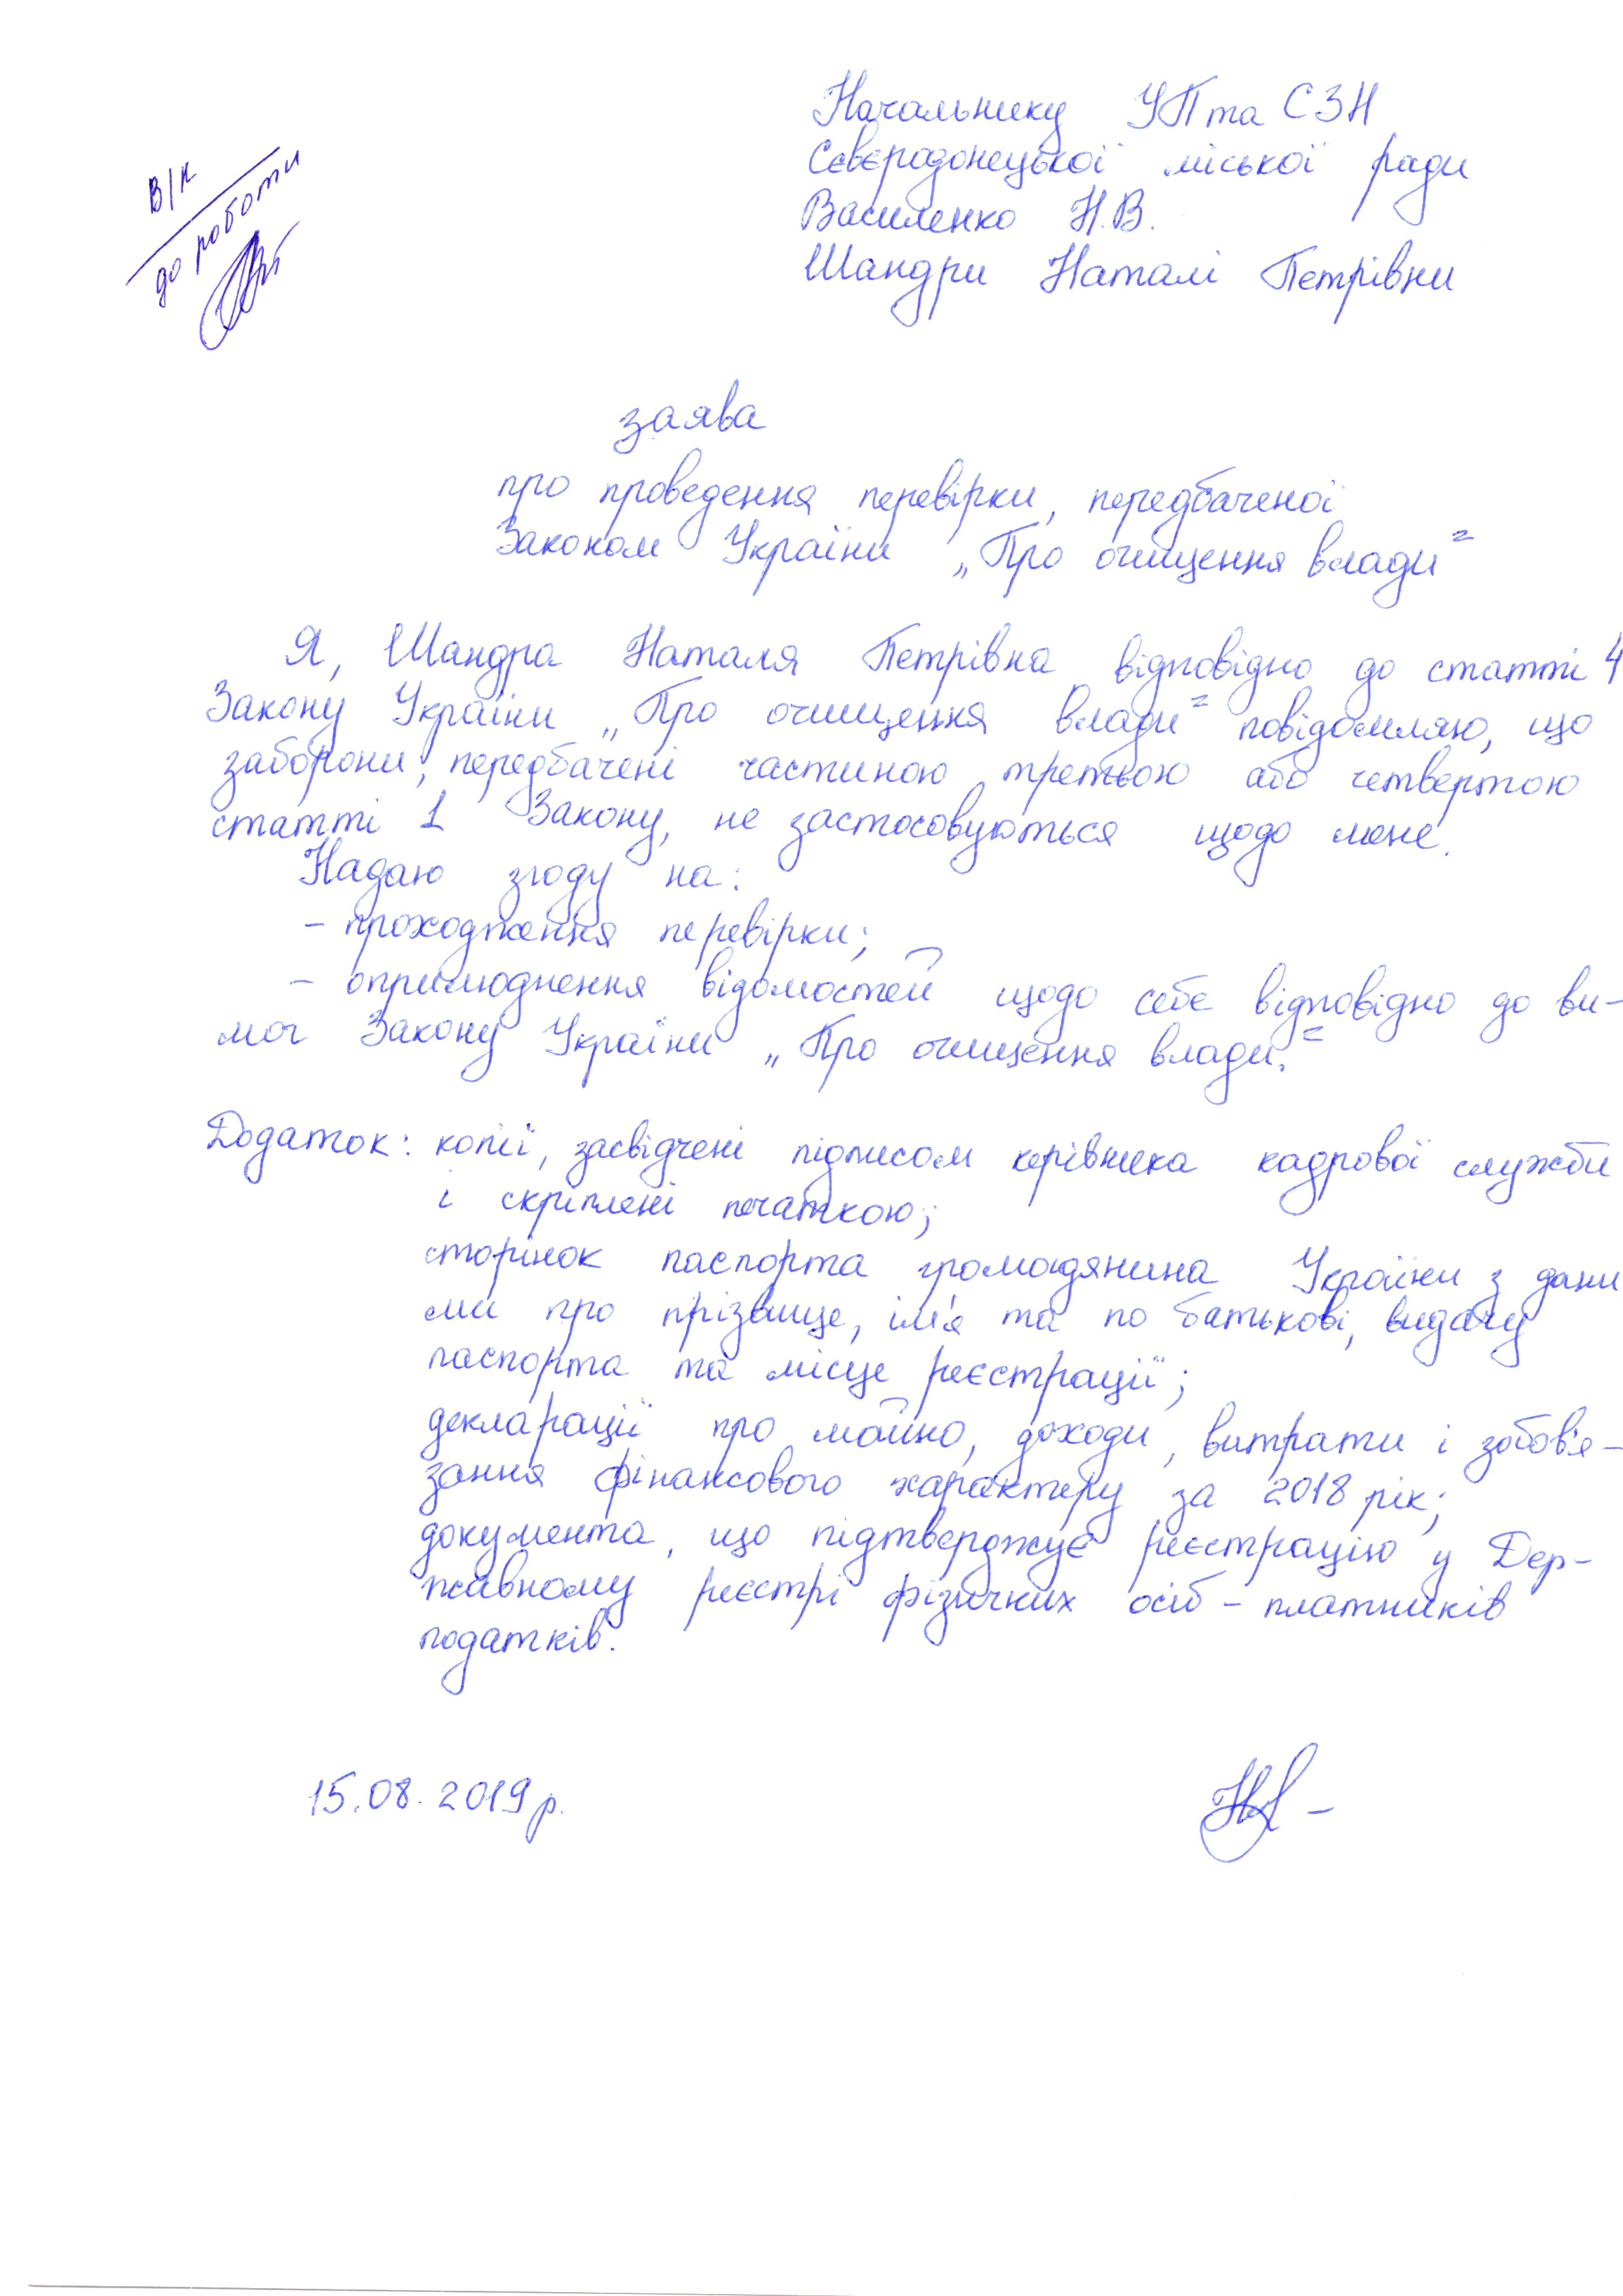 Начальнику УП та СЗН
Сєвєродонецької міської ради
Василенко Н.В.
Шандри Наталі Петрівни
В/К
до роботи
заява
про проведення перевірки, передбаченої
Законом України „Про очищення влади"
Я, Шандра Наталя Петрівна відповідно до статті 4
Закону України „Про очищення влади" повідомляю, що
заборони, передбачені частиною третьою або четвертою
статті 1 Закону, не застосовуються щодо мене.
Надаю згоду на:
- проходження перевірки;
- оприлюднення відомостей щодо себе відповідно до ви-
мог Закону України „Про очищення влади."
Додаток: копії, засвідчені підписом керівника кадрової служби
і скріплені печаткою;
сторінок паспорта громадянина України з дани
ми про прізвище, ім'я та по батькові, видачу
паспорта та місце реєстрації;
декларації про майно, доходи, витрати і зобов'я-
зання фінансового характеру за 2018 рік;
документа, що підтверджує реєстрацію у Дер-
жавному реєстрі фізичних осіб - платників
податків.
15.08.2019 р.